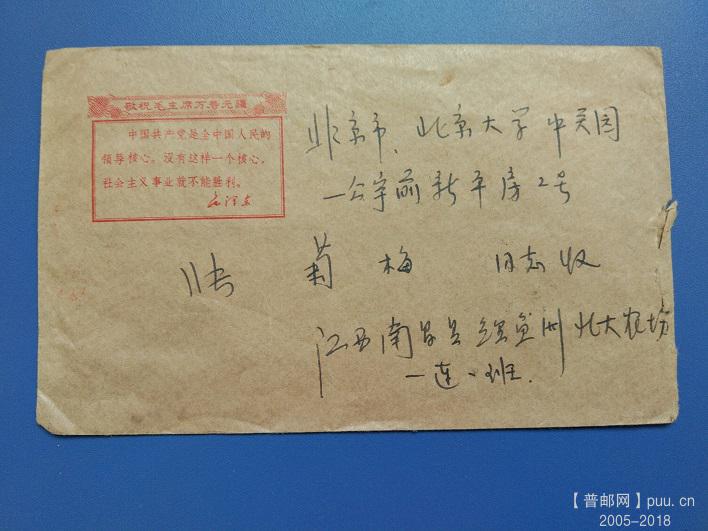 敬祝毛主席万寿无疆
中国共产党是全中国人民的
领导核心。没有这样一个核心,
社会主义事业就不能胜利。
毛泽东
北京市、北京大学中关园
一公宇前新平房2号
张菊梅 同志收
江西南昌县鲤鱼洲北大农场
一连、班.
【普邮网】puu.cn
2005-2018